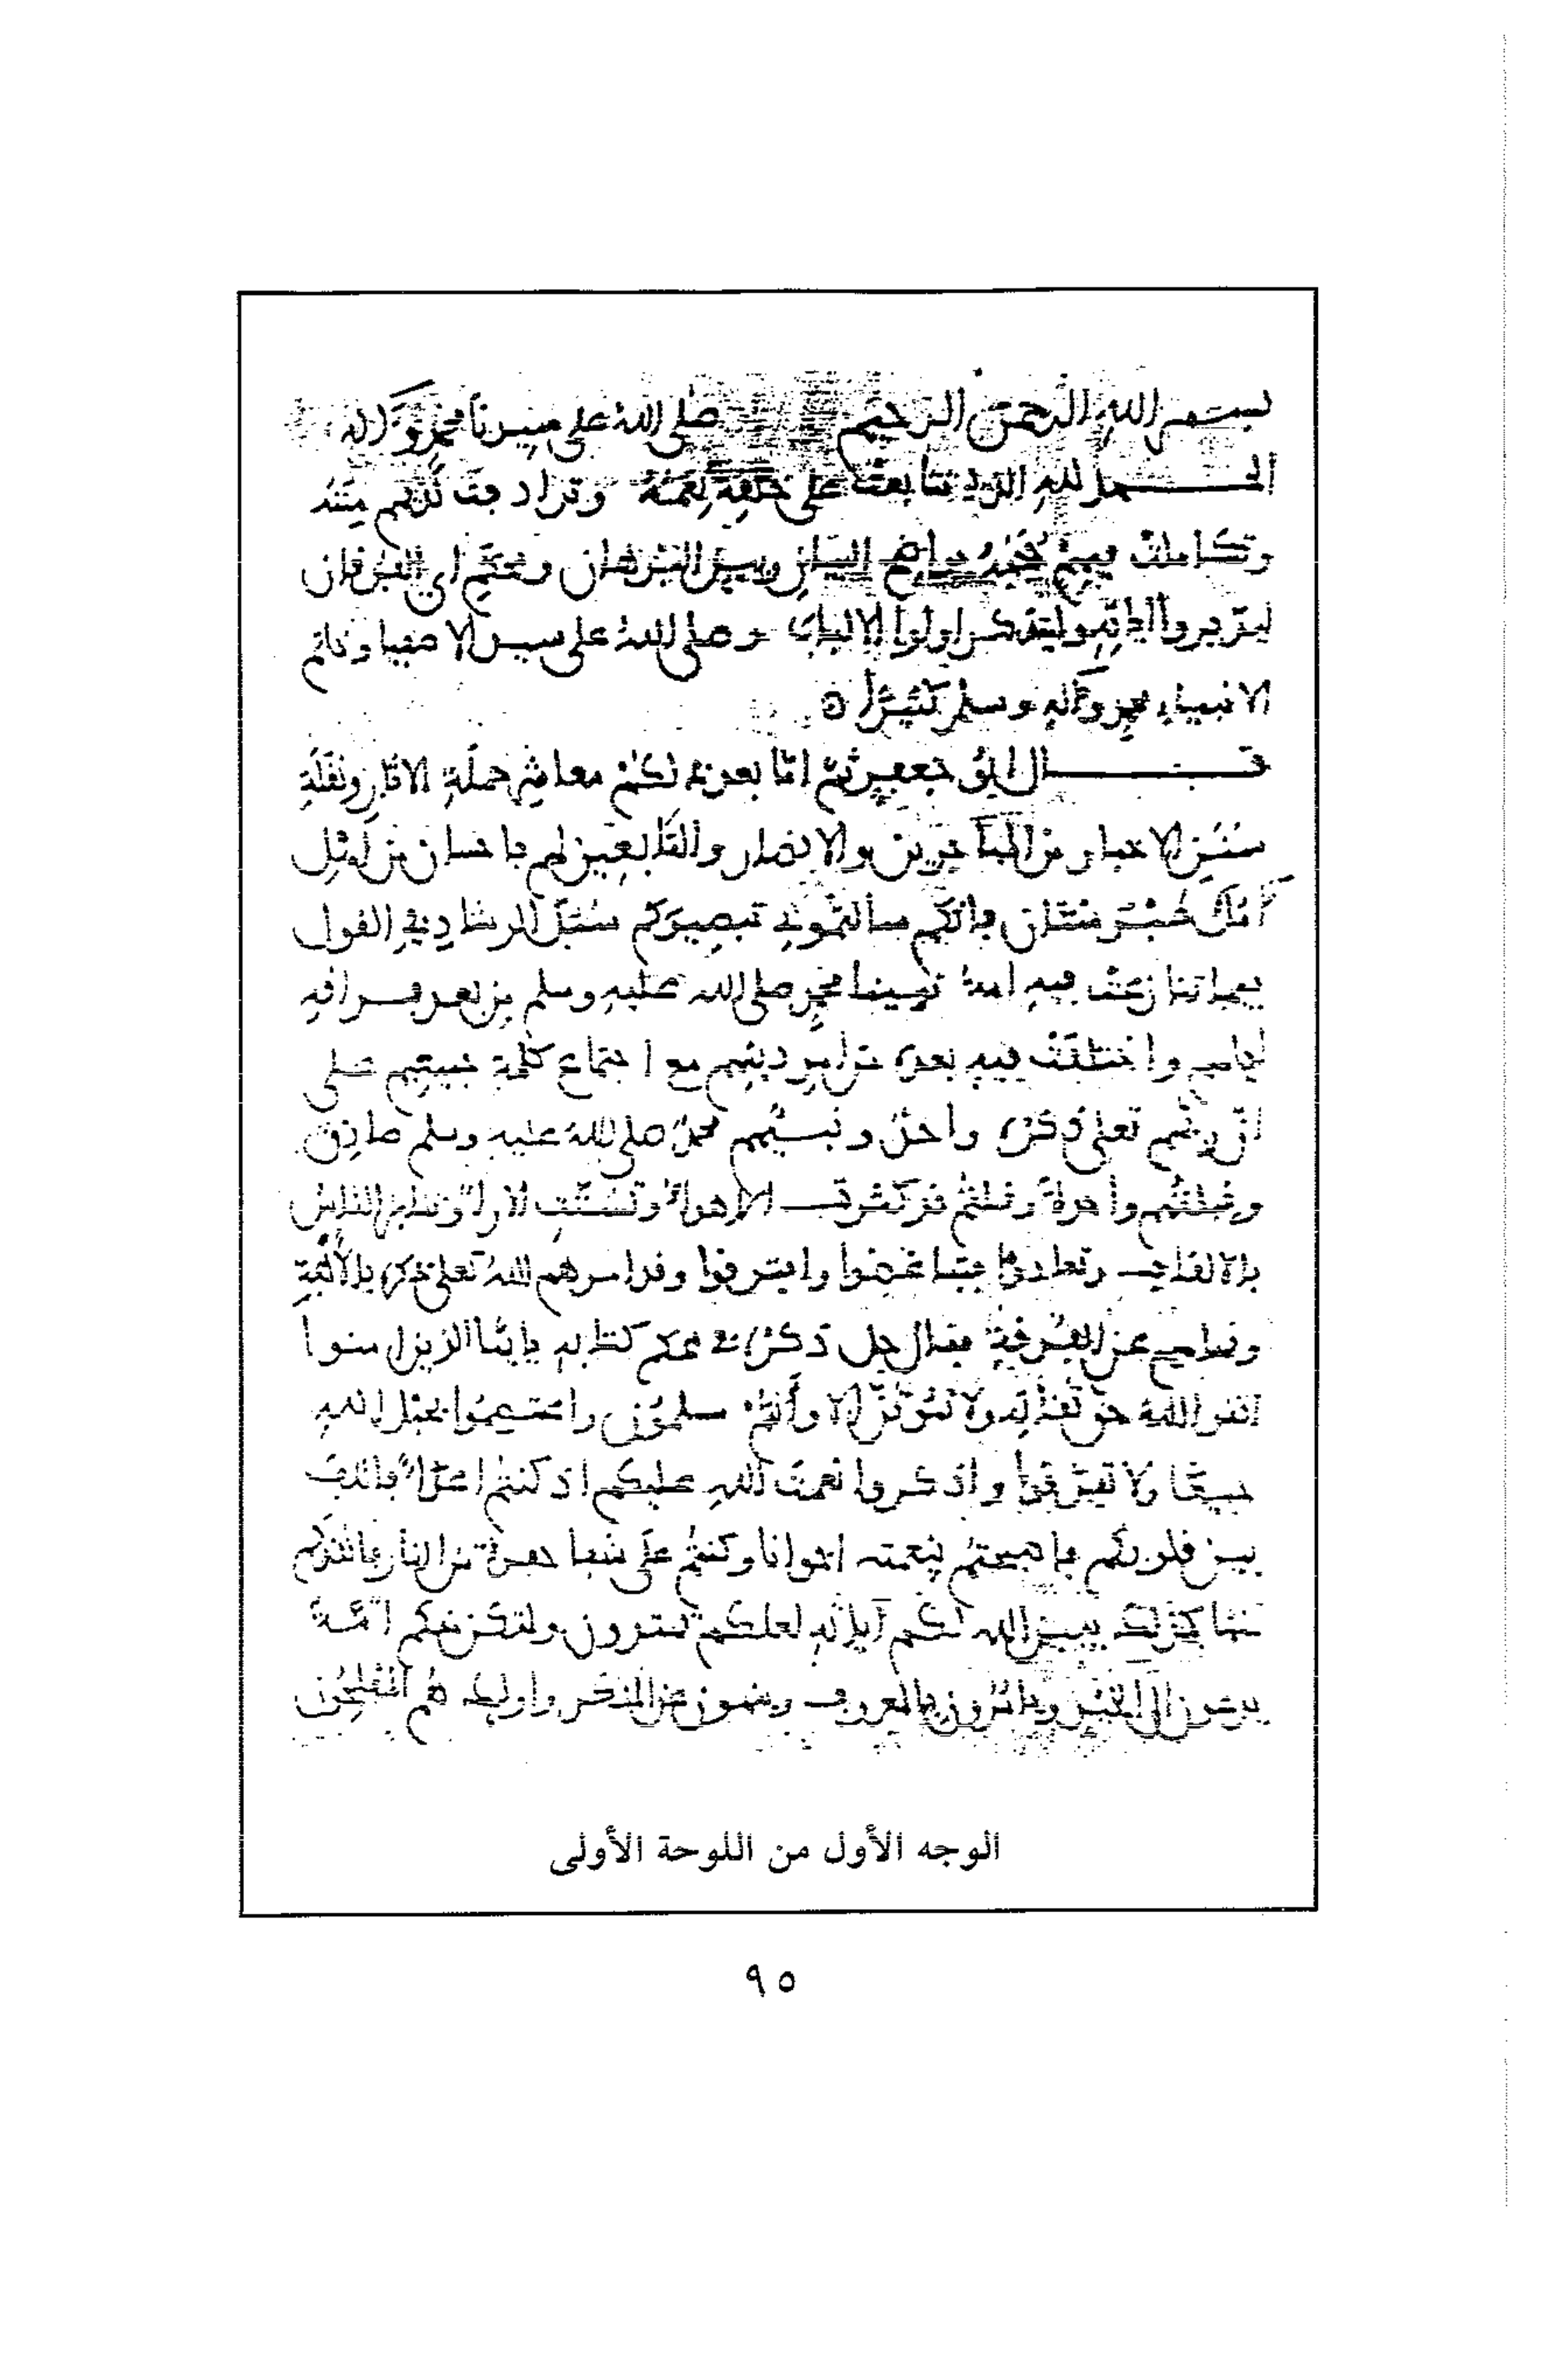 بسم الله الرحمن الرحيم صلى الله على سيدنا محمد وآله
الحمد لله الذي تتابعت على خلقه نعمه وترادفت لديهم مننه
وتكاملت فيهم حججه بواضح البيان وبين البرهان ومحكم آي الفرقان
ليدبروا آياته وليتذكر اولوا الالباب وصلى الله على سيد الاصفيا وخاتم
الانبياء محمد وآله وسلم كثيرا
قال ابو جعفر ثم اما بعد لكم معاشر حملة الاثار ونقلة
سنن الاخبار من المهاجرين والانصار والتابعين لهم باحسان من اهل
فانكم سالتموني تبصيركم سبل الرشاد في القول
فيما تنازعت فيه امة نبينا محمد صلى الله عليه وسلم من بعد فراقه
اياهم واختلفت فيه بعده من امر دينهم مع اجتماع كلمة جميعهم على
ان ربهم تعلى ذكره واحد ونبيهم محمد صلى الله عليه وسلم صادق
وقبلتهم واحدة وقلتم قد كثرت الاهواء وتشتت الاراء وتنابز الناس
بالالقاب وتعادوا فتباغضوا وافترقوا وقد امرهم الله تعلى ذكره بالالفة
ونهاهم عن الفرقة فقال جل ذكره في محكم كتابه يا ايها الذين امنوا
اتقوا الله حق تقاته ولا تموتن الا وأنتم مسلمون واعتصموا بحبل الله
جميعا ولا تفرقوا واذكروا نعمت الله عليكم اذ كنتم اعداء فالف
بين قلوبكم فاصبحتم بنعمته اخوانا وكنتم على شفا حفرة من النار فانقذكم
منها كذلك يبين الله لكم آياته لعلكم تهتدون ولتكن منكم امة
يدعون الى الخير ويامرون بالمعروف وينهون عن المنكر واوليك هم المفلحون
الوجه الأول من اللوحة الأولى
٩٥